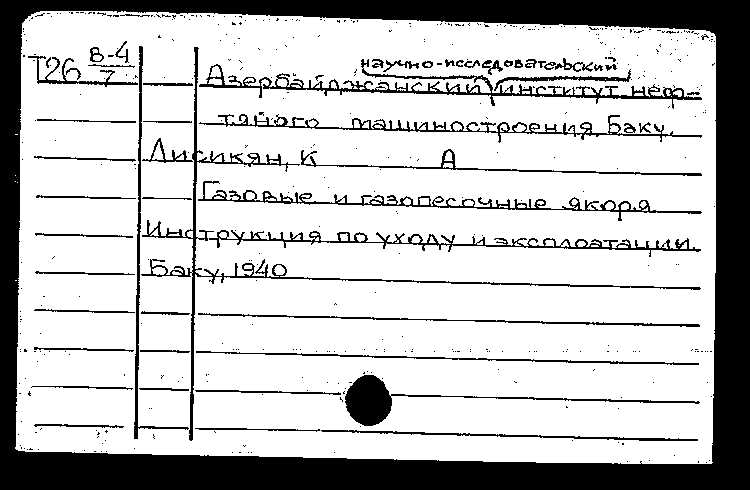 научно-исследовательский
Т26 В-4/7 Азербайджанский институт неф-
тяного машиностроения. Баку.
Лисикян, К А
Газовые и газопесочные якоря.
Инструкция по уходу и эксплоатации.
Баку, 1940